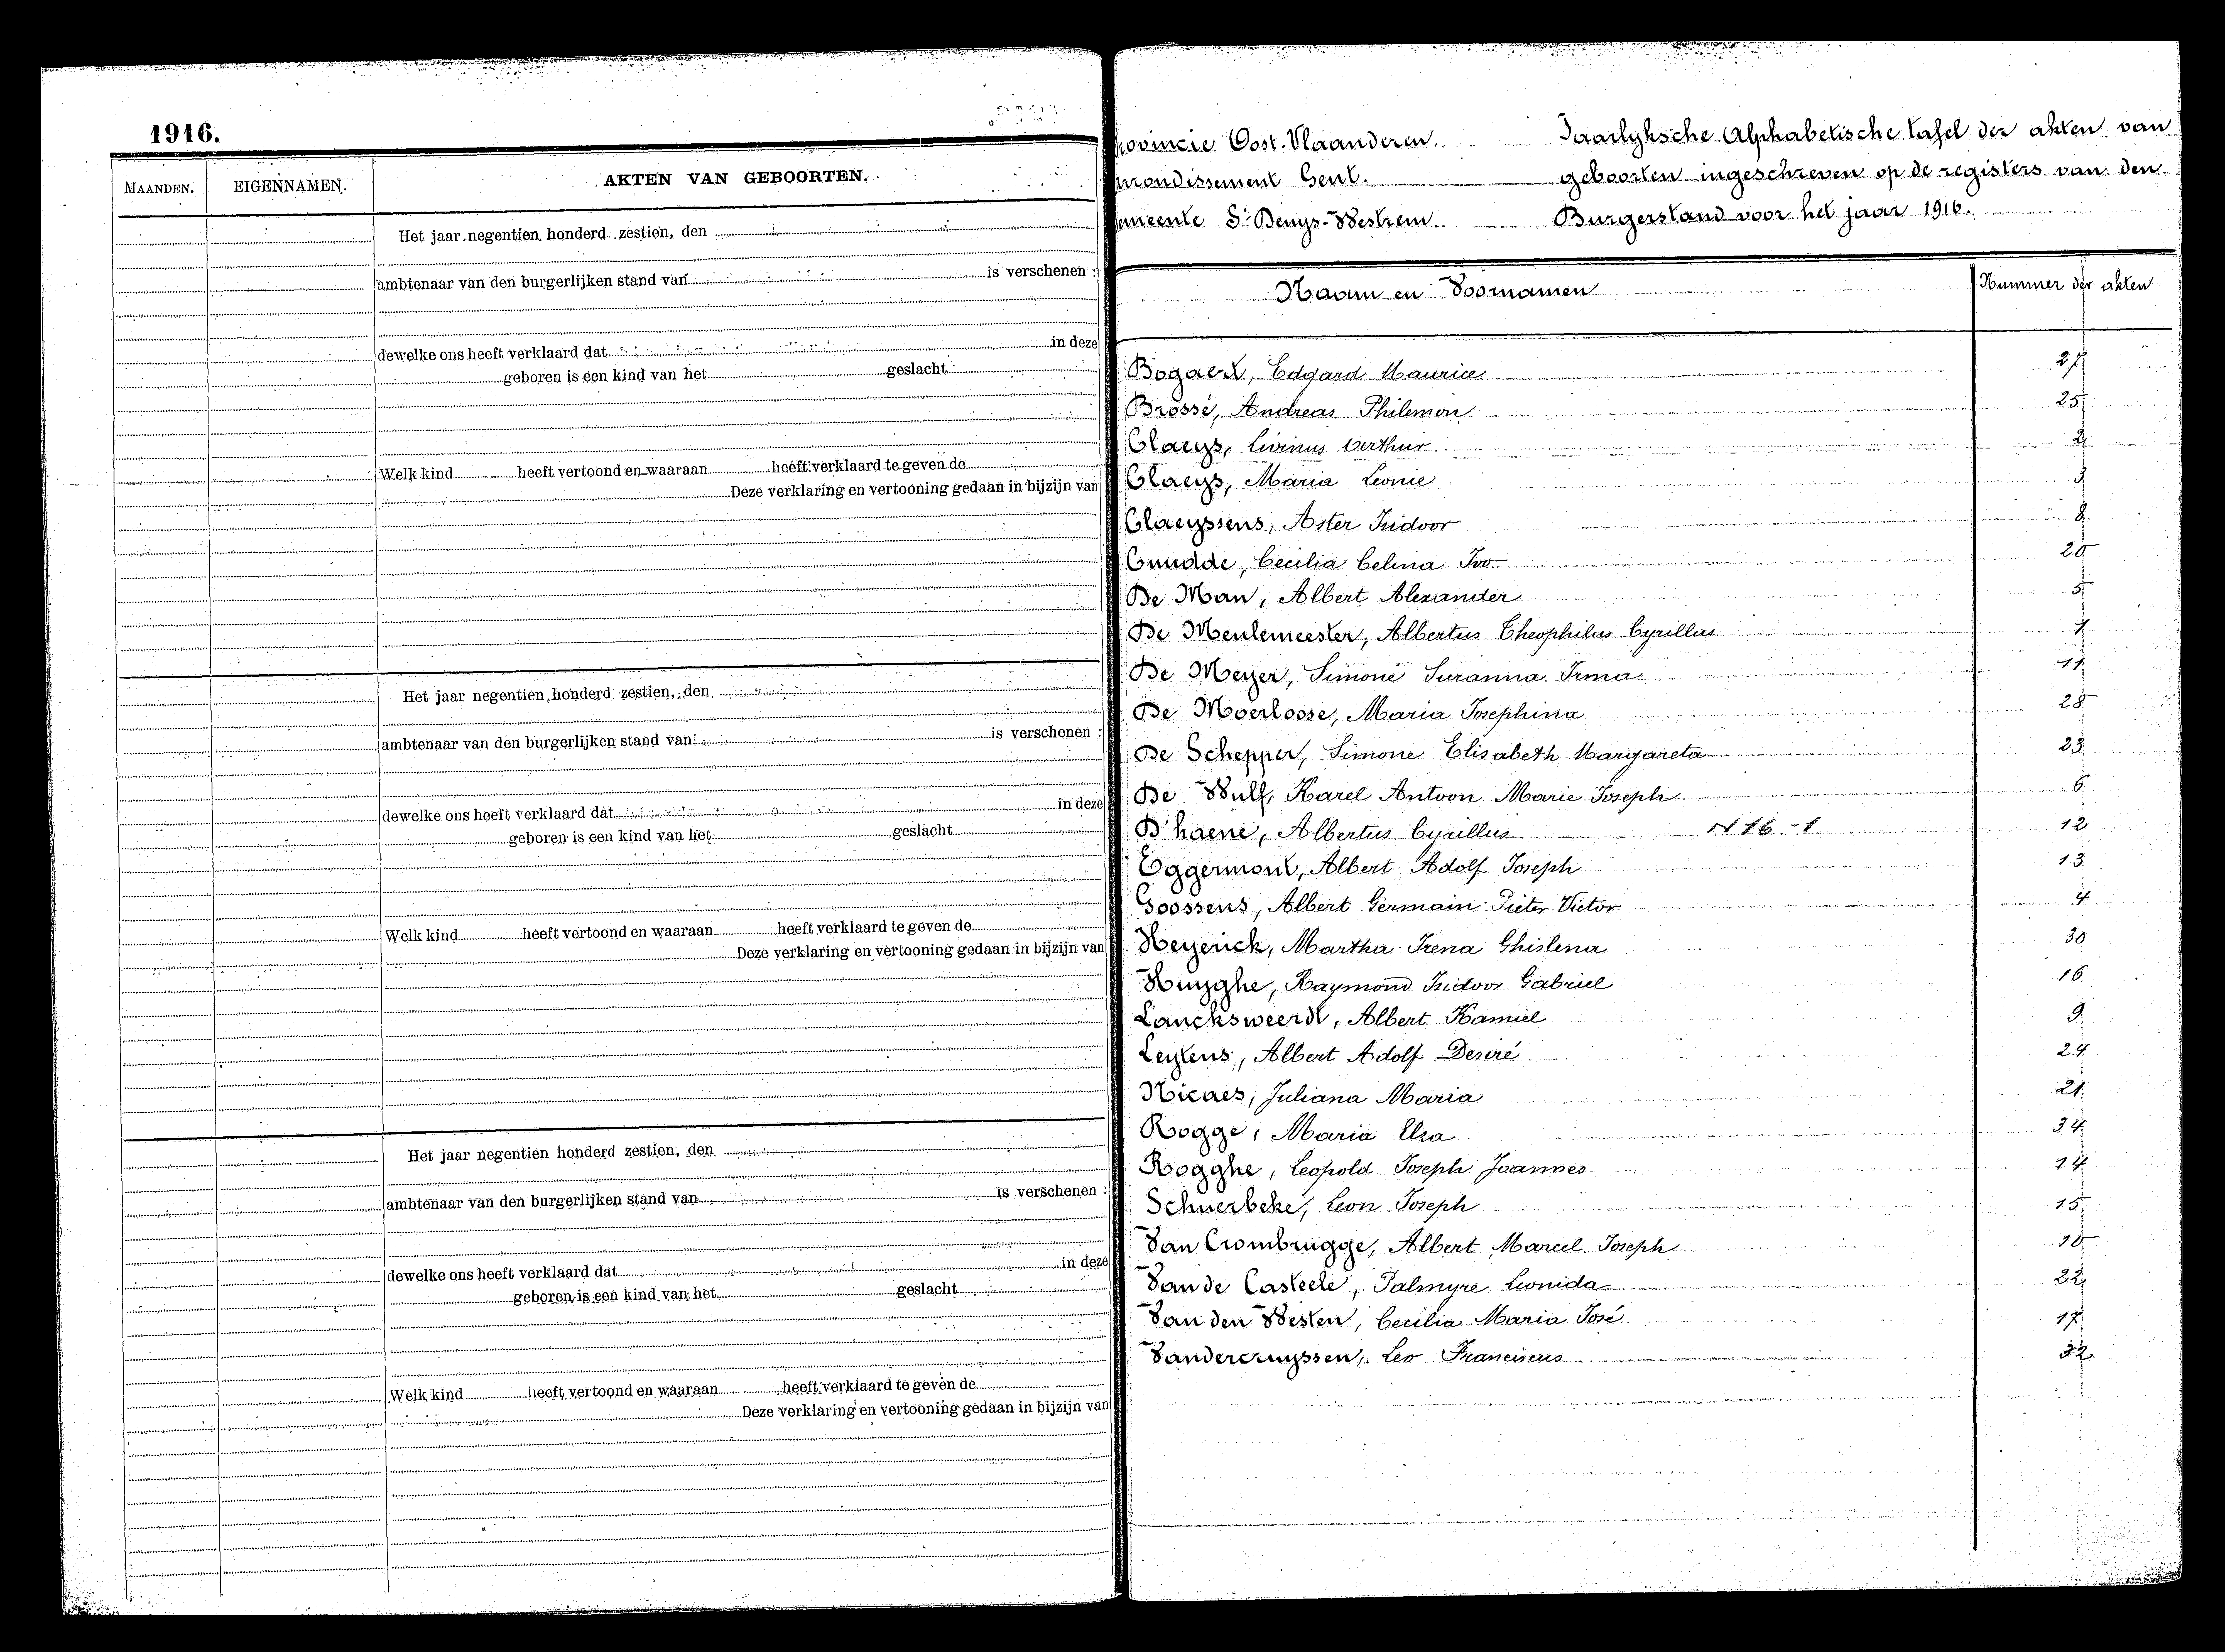 1916.
MAANDEN. EIGENNAMEN. AKTEN VAN GEBOORTEN.
Het jaar negentien honderd zestien, den
ambtenaar van den burgerlijken stand van is verschenen :
dewelke ons heeft verklaard dat in deze
geboren is een kind van het geslacht
Welk kind heeft vertoond en waaraan heeft verklaard te geven de
Deze verklaring en vertooning gedaan in bijzijn van
Het jaar negentien honderd zestien, den
ambtenaar van den burgerlijken stand van is verschenen :
dewelke ons heeft verklaard dat in deze
geboren is een kind van het geslacht
Welk kind heeft vertoond en waaraan heeft verklaard te geven de
Deze verklaring en vertooning gedaan in bijzijn van
Het jaar negentien honderd zestien, den
ambtenaar van den burgerlijken stand van is verschenen :
dewelke ons heeft verklaard dat in deze
geboren is een kind van het geslacht
Welk kind heeft vertoond en waaraan heeft verklaard te geven de
Deze verklaring en vertooning gedaan in bijzijn van
rovincie Oost-Vlaanderen. Jaarlyksche Alphabetische tafel der akten van
rrondissement Gent. geboorten ingeschreven op de registers van den
emeente St Denys-Westrem. Burgerstand voor het jaar 1916.
Naam en Voornamen Nummer der akten
Bogaert, Edgard Maurice 27
Brossé, Andreas Philemon 25
Claeys, Livinus Arthur 2
Claeys, Maria Leonie 3
Claeyssens, Aster Isidoor 8
Cnudde, Cecilia Celina Ivo 20
De Man, Albert Alexander 5
De Meulemeester, Albertus Theophilus Cyrillus
De Meyer, Simone Suzanna Irma 11
De Moerloose, Maria Josephina 28
De Schepper, Simone Elisabeth Margareta 23
De Wulf, Karel Antoon Marie Joseph 6
D'haene, Albertus Cyrillus N 16 - 1 12
Eggermont, Albert Adolf Joseph 13
Goossens, Albert Germain Pieter Victor 4
Heyerick, Martha Irena Ghislena 30
Huyghe, Raymond Isidoor Gabriel 16
Lancksweerdt, Albert Kamiel 9
Leytens, Albert Adolf Desiré 24
Nicaes, Juliana Maria 21
Rogge, Maria Elsa 34
Rogghe, Leopold Joseph Joannes 14
Schuerbeke, Leon Joseph 15
Van Crombrugge, Albert Marcel Joseph 10
Van de Casteele, Palmyre Leonida 22
Van den Westen, Cecilia Maria José 17
Vandercruyssen, Leo Franciscus 32